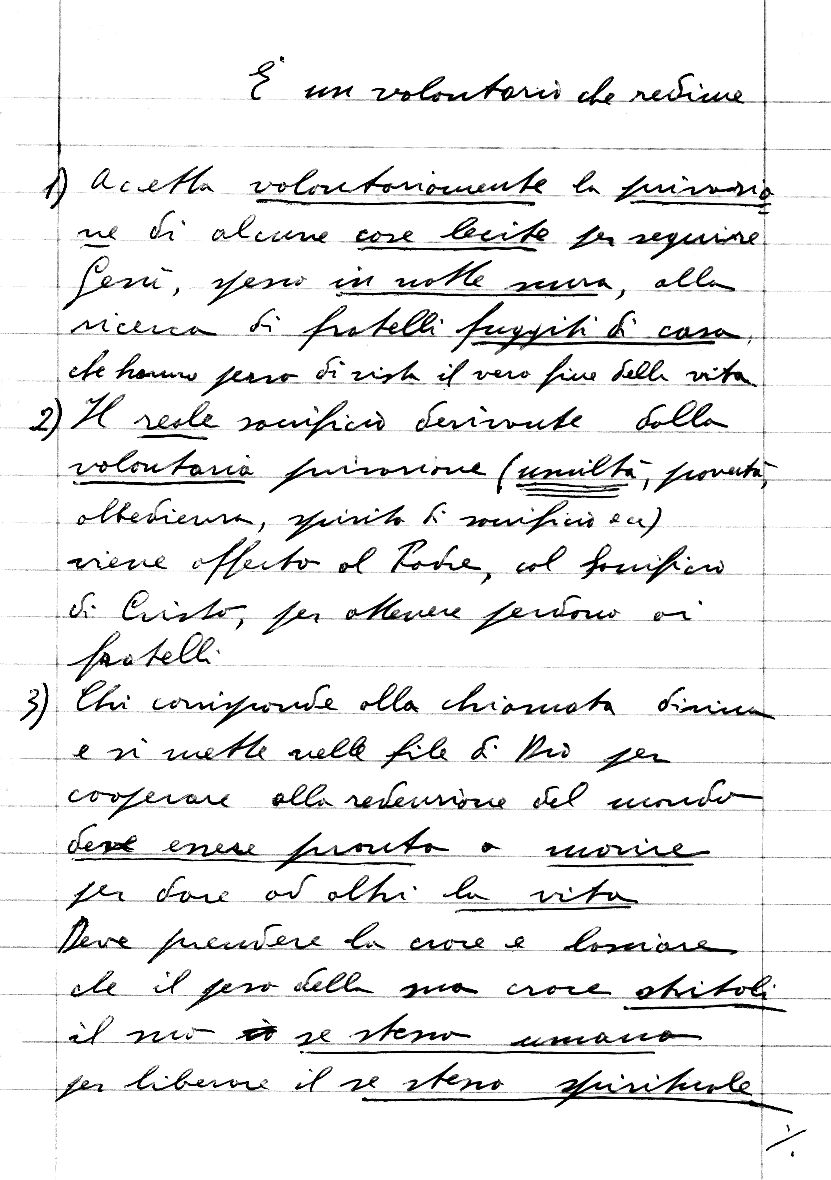 E' un volontario che redime
1) Accetta volontariamente la privazio
ne di alcune cose lecite per seguire
Gesù, spesso in notte scura, alla
ricerca di fratelli fuggiti di casa,
che hanno perso di vista il vero fine della vita
2) Il reale sacrificio derivante dalla
volontaria privazione (umiltà, povertà,
obbedienza, spirito di sacrificio ecc)
viene offerto al Padre, col Sacrificio
di Cristo, per ottenere perdono ai
fratelli
3) Chi corrisponde alla chiamata divina
e si mette nelle file di Dio per
cooperare alla redenzione del mondo
deve essere pronta a morire
per dare ad altri la vita
Deve prendere la croce e lasciare
che il peso della sua croce stritoli
il suo io se stesso umano
per liberare il se stesso spirituale
./.